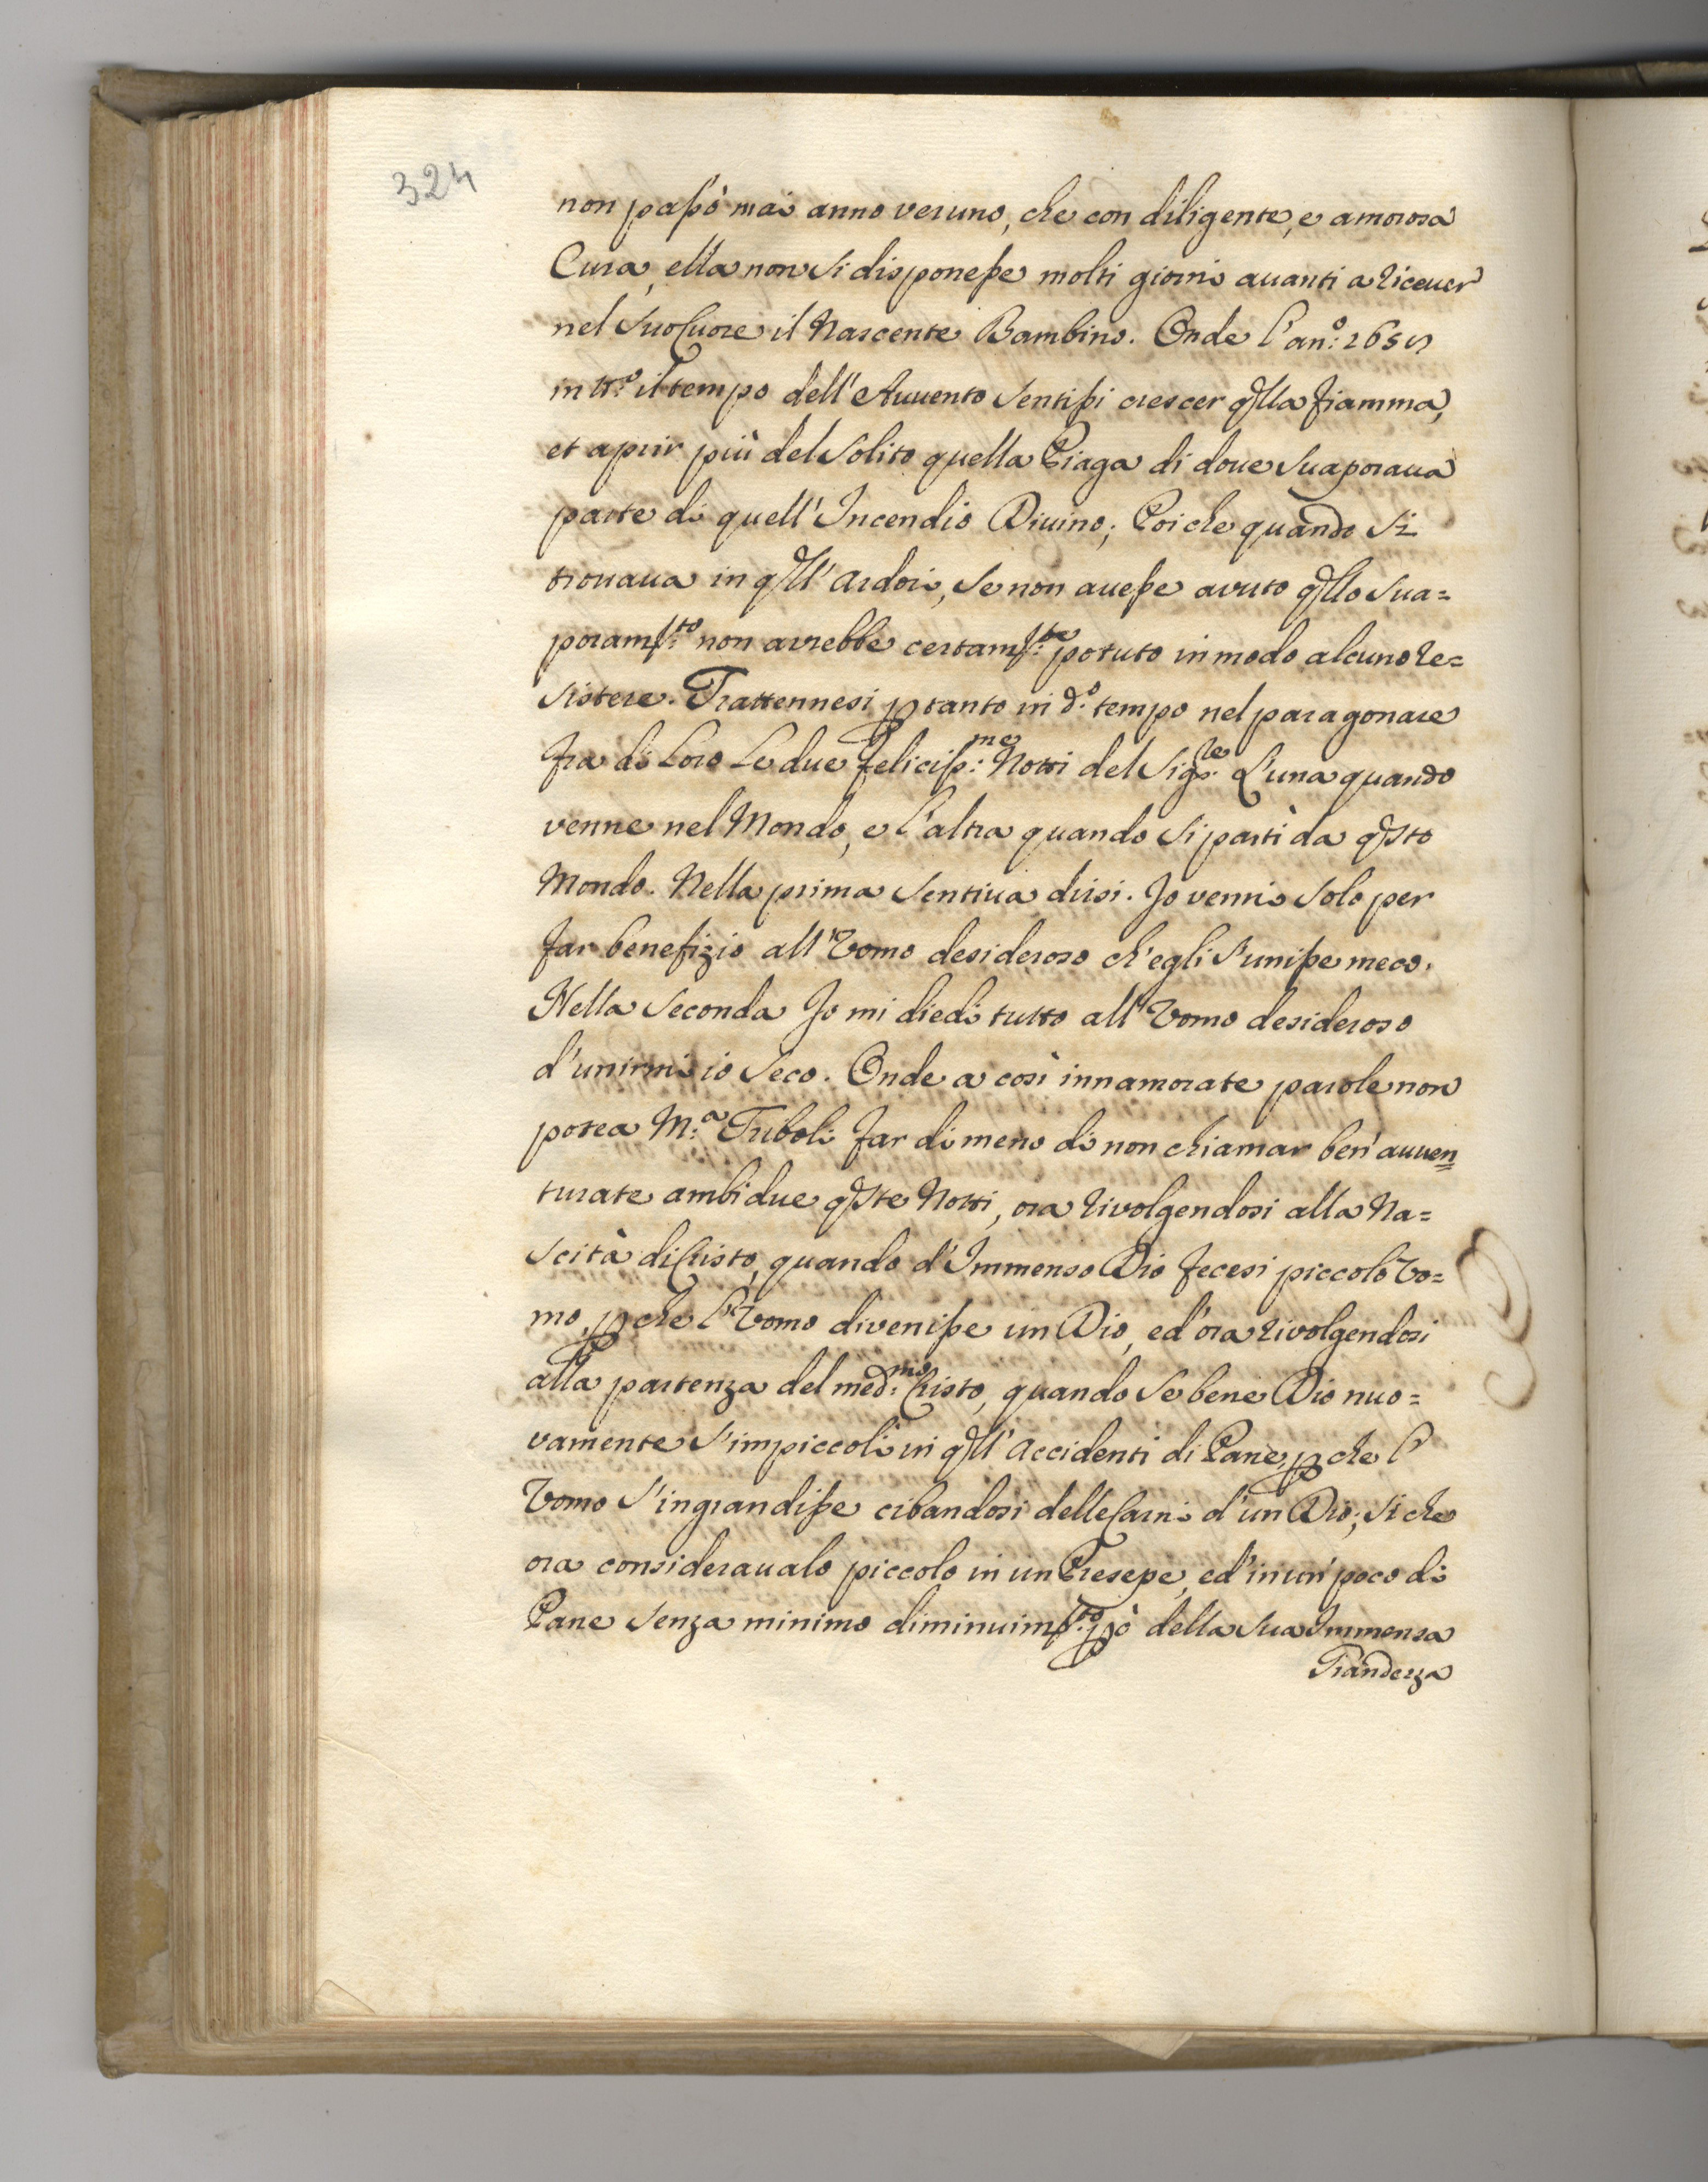 324
non passò mai anno veruno, che con diligente, e amorosa
Cura, ella non si disponesse molti giorni auanti a riceuer
nel suo Cuore il Nascente Bambino. Onde l'an:º
in tt.º il tempo dell'Auuento sentissi crescer qlla fiamma,
et aprir più del solito quella Piaga di doue suaporaua
parte di quell'Incendio Diuino; Poiche quando si
trouaua in qll'ardori, se non auesse avuto qllo sua=
poram:to non avrebbe certam:te potuto in modo alcuno re=
sistere. Trattennesi ptanto in d.º tempo nel paragonare
fra di Loro Le due feliciss:me Notti del Sig:re L'una quando
venne nel Mondo, e l'altra quando si partì da qsto
Mondo. Nella prima sentiua dirsi. Io venni solo per
far benefizio all'Vomo desideroso ch'egli s'unisse meco.
Nella seconda Io mi diedi tutto all'Vomo desideroso
d'unirmi io seco. Onde a così innamorate parole non
potea M:a Triboli far di meno di non chiamar ben'auuen=
turate ambidue qste Notti, ora rivolgendosi alla Na=
scità di Cristo, quando d'Immenso Dio fecesi piccolo Vo=
mo, pche l'Vomo divenisse un Dio, ed'ora rivolgendosi
alla partenza del med:mo Cristo, quando se bene Dio nuo=
vamente s'impiccolì in qll'accidenti di Pane, pche l'
Vomo s'ingrandisse cibandosi delle Carni d'un Dio; si che
ora consideraualo piccolo in un Presepe, ed'in un'poco di
Pane senza minimo diminuim:to pò della sua Immensa
Grandezza